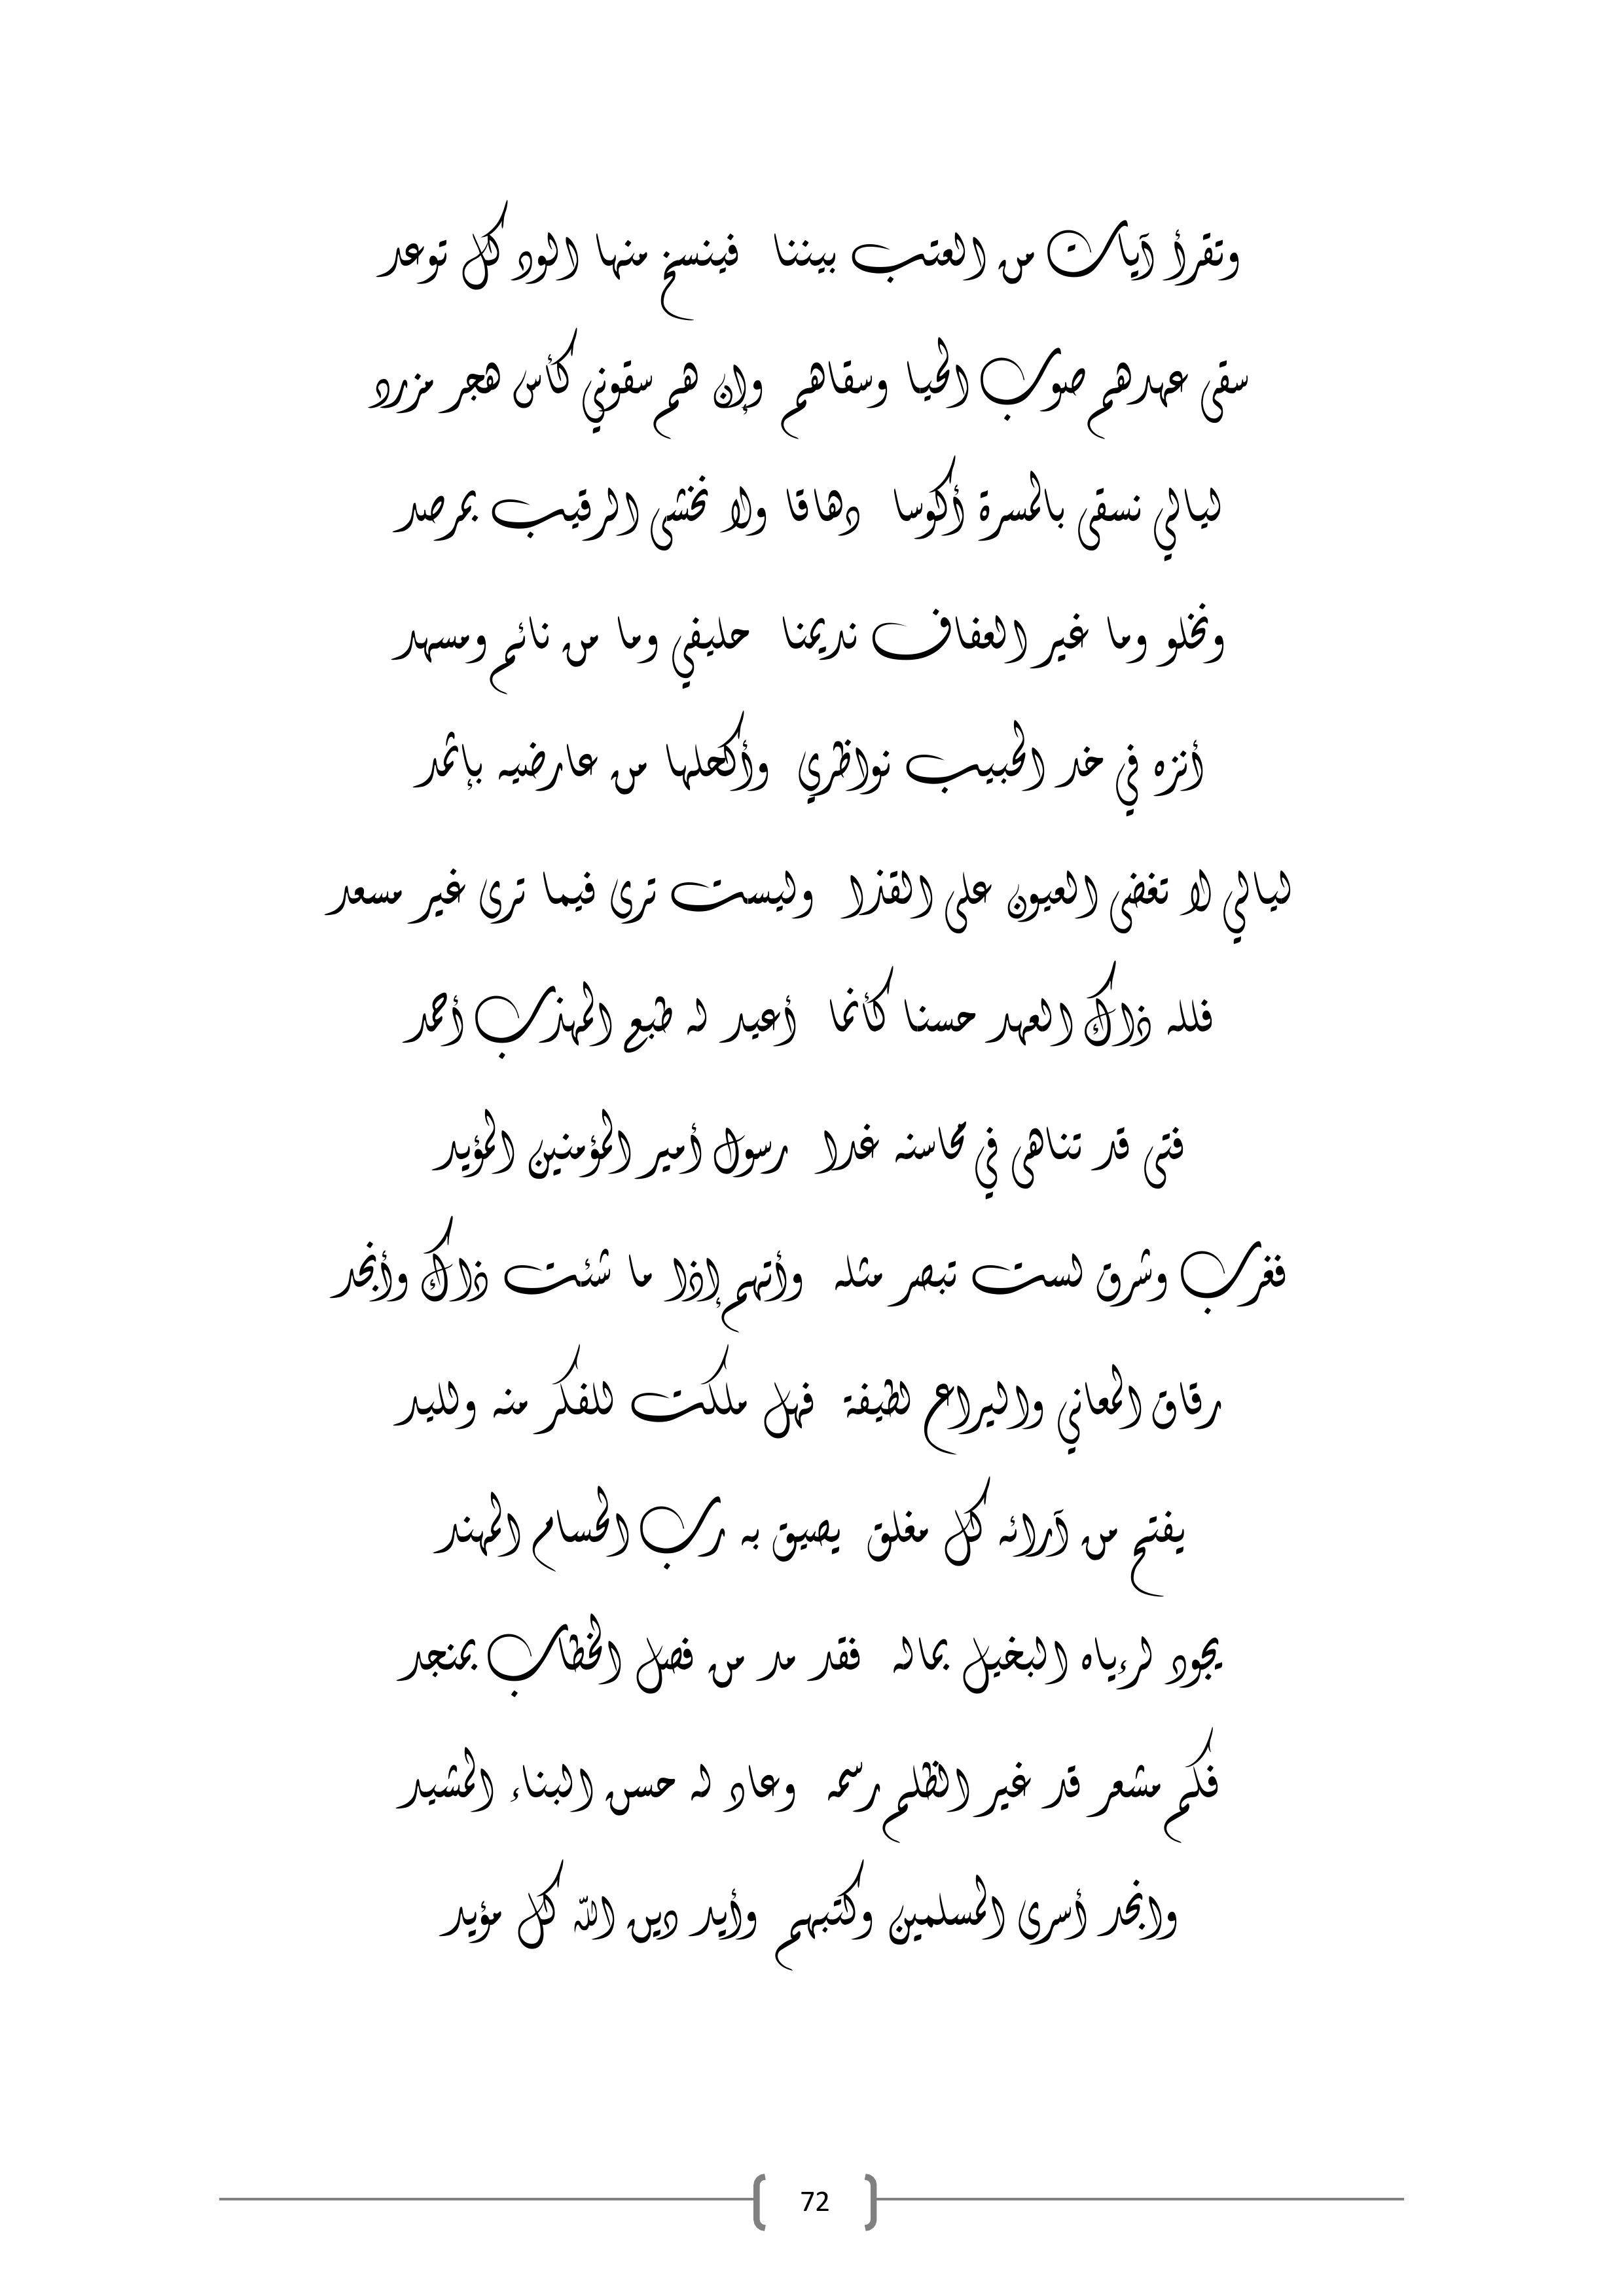 وتقرأ آيات من العتب بيننا فينسخ منها الود كل توعد
سقى عهدهم صوب الحيا وسقاهم وإن هم سقوني كأس هجر مزرد
ليالي نسقى بالمسرة أكوسا دهاقا ولا نخشى الرقيب بمرصد
ونخلو وما غير العفاف نديمنا حليفي وما من نائم ومسهد
أنزه في خد الحبيب نواظري وأكحلها من عارضيه بإثمد
ليالي لا تغضى العيون على القذا وليست ترى فيما ترى غير مسعد
فلله ذاك العهد حسنا كأنما أعيد له طبع المهذب أحمد
فتى قد تناهى في محاسنه غدا رسول أمير المؤمنين المؤيد
فغرب وشرق لست تبصر مثله وأتهم إذا ما شئت ذاك وأنجد
رقاق المعاني واليراع لطيفة فهل ملكت للفكر منه ولليد
يفتح من آرائه كل مغلق يصيق به رب الحسام المهند
يجود لرءياه البخيل بماله فقد مد من فصل الخطاب بمنجد
فكم مشعر قد غير الظلم رسمه وعاد له حسن البناء المشيد
وانجد أسرى المسلمين وكتبهم وأيد دين الله كل مؤيد
72